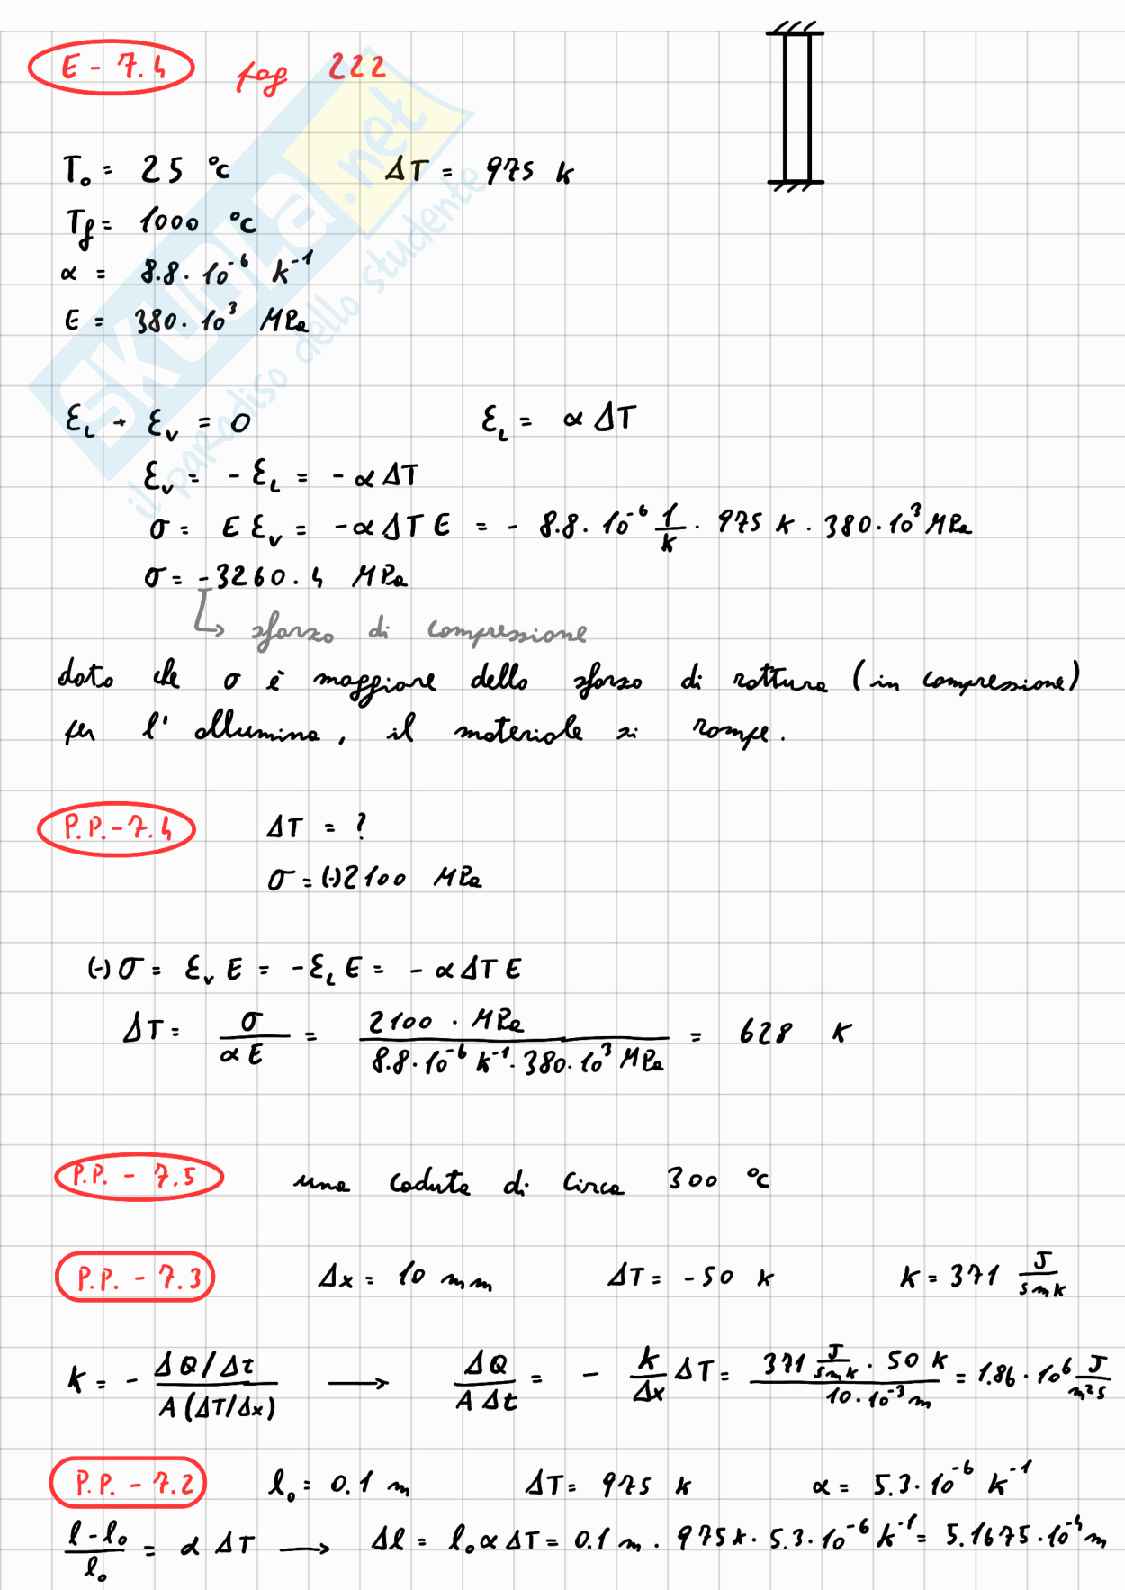 E - 7.4 pag 222
T₀ = 25 °C ΔT = 975 K
T_f = 1000 °C
α = 8.8 · 10⁻⁶ K⁻¹
E = 380 · 10³ MPa
SKUOLA.net
il paradiso dello studente
ε_L + ε_V = 0 ε_L = α ΔT
ε_V = - ε_L = - α ΔT
σ = E ε_V = - α ΔT E = - 8.8 · 10⁻⁶ 1/K · 975 K · 380 · 10³ MPa
σ = -3260.4 MPa
↳ sforzo di compressione
dato che σ è maggiore dello sforzo di rottura (in compressione)
per l'allumina, il materiale si rompe.
P.P. - 7.4 ΔT = ?
σ = (-)2100 MPa
(-) σ = ε_V E = - ε_L E = - α ΔT E
ΔT = σ / (α E) = 2100 · MPa / (8.8 · 10⁻⁶ K⁻¹ · 380 · 10³ MPa) = 628 K
P.P. - 7.5 una caduta di circa 300 °C
P.P. - 7.3 Δx = 10 mm ΔT = - 50 K K = 371 J / (s m K)
K = - (ΔQ/Δt) / (A (ΔT/Δx)) ⟶ ΔQ / (A Δt) = - k/Δx ΔT = (371 J/(s m K) · 50 K) / (10 · 10⁻³ m) = 1.86 · 10⁶ J/(m² s)
P.P. - 7.2 l₀ = 0.1 m ΔT = 975 K α = 5.3 · 10⁻⁶ K⁻¹
(l - l₀) / l₀ = α ΔT ⟶ Δl = l₀ α ΔT = 0.1 m · 975 K · 5.3 · 10⁻⁶ K⁻¹ = 5.1675 · 10⁻⁴ m